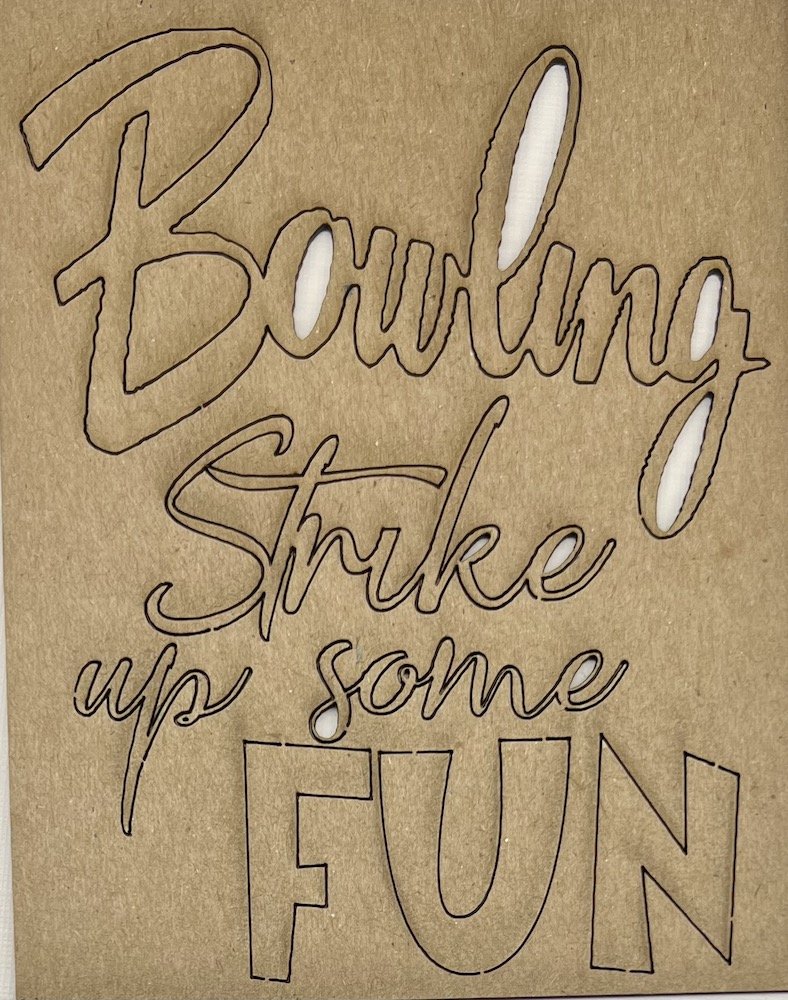 Bowling
Strike
up some
FUN